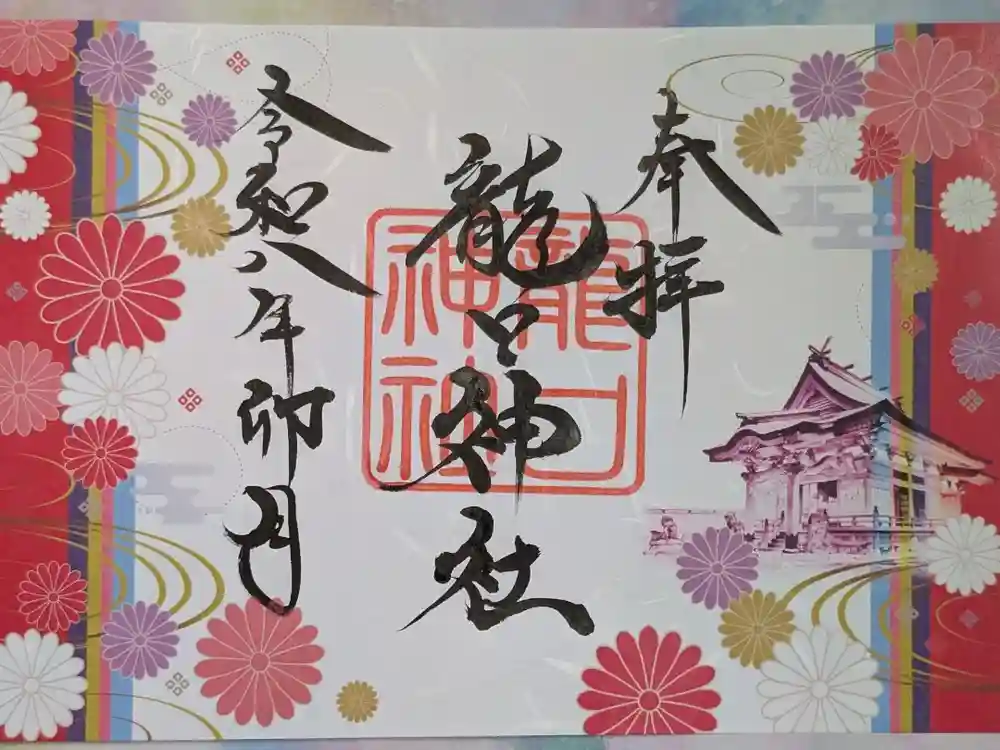 奉拝
龍口神社
龍口
神社
令和八年卯月